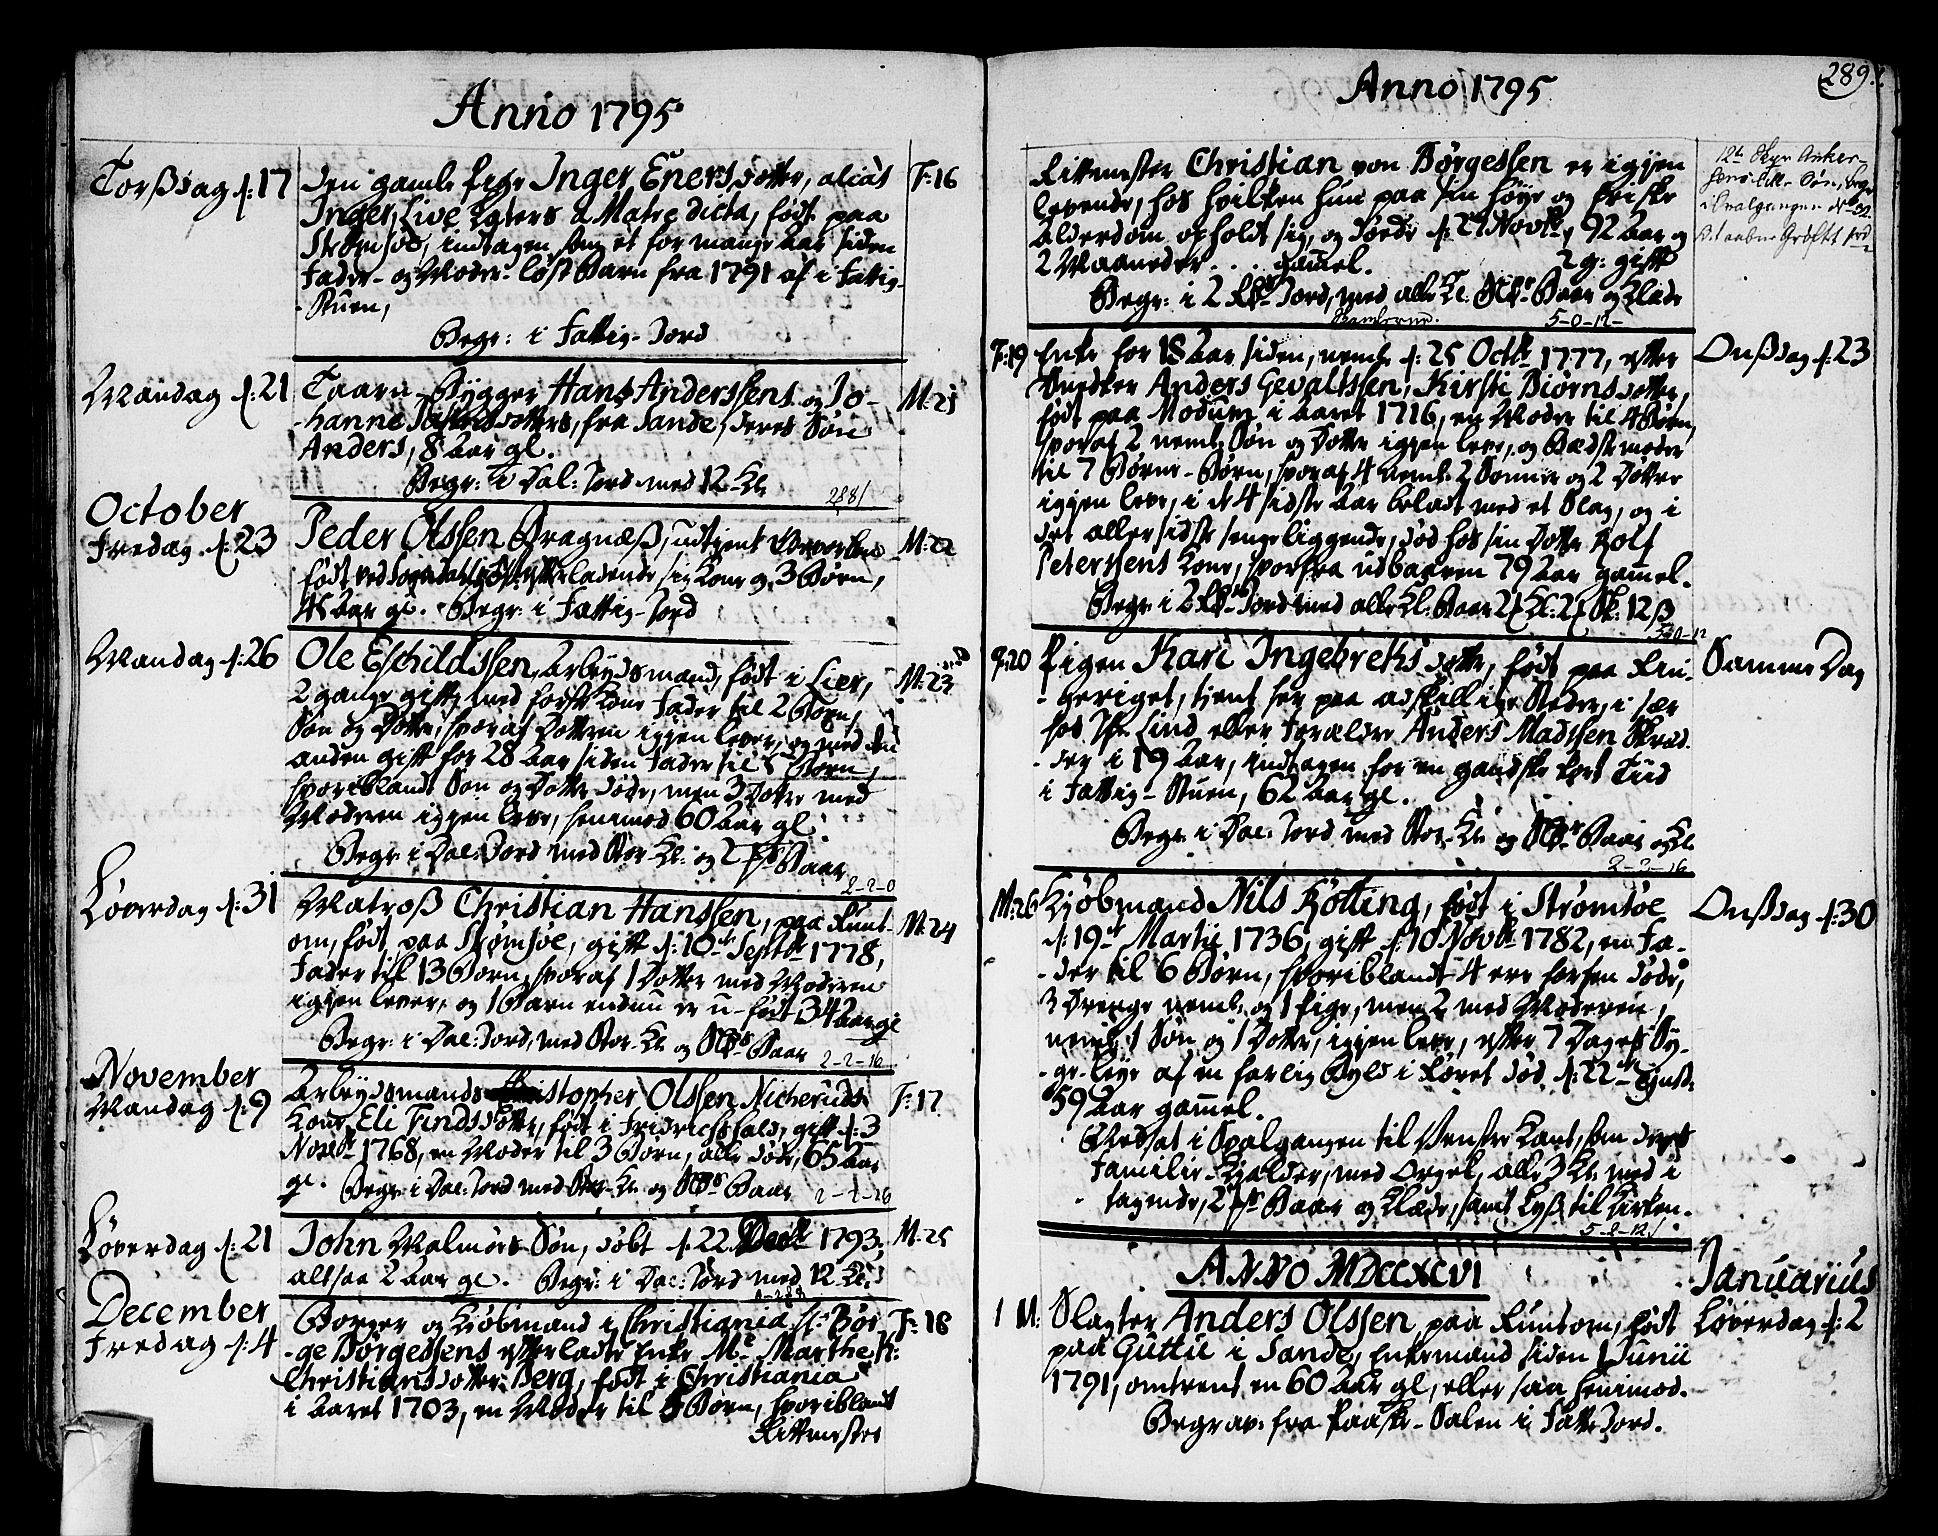 Anno 1795
Torßdag d: 17
Den gamle Pige Inger Enersdotter, alias
F: 16
Inger Live Ejlers a Matre dicta, født paa
Strømsøe, indtagen som et for mange Aar siden
Fader- og Moder-løst Barn fra 1791 af i Fattig-
-Stuen,
Begr: i Fattig-Jord
Mandag d: 21
Taarn-Bygger Hans Anderssens og Jo-
M: 21
-hanne dotters, fra Sande, deres Søn
Anders, 8 Aar gl.
Begr: i Dal: Jord med 12-Kl.
288/
October
Fredag d: 23
Peder Olssen Dragnæß, udtjent
M: 22
født ved efterladende sig Kone og 3 Børn,
45 Aar gl. Begr: i Fattig-Jord
Mandag d: 26
Ole Eschildssen, Arbeydsmand, født i Lier,
M: 23
2 gange gift, med første Kone Fader til 2 Børn,
Søn og Dotter, hvoraf Dotteren igjen lever, og med den
anden gift for 28 Aar siden Fader til 5 Børn,
hvoriblandt Søn og Dotter døde, men 3 Døtre med
Moderen igjen leve, henimod 60 Aar gl.
Begr: i Dal: Jord med Stor-Kl: og 2 ß Baar
2-2-0
Løverdag d: 31
Matroß Christian Hanssen, paa Rundt-
M: 24
om, født paa Strømsøe, gift d: 10de Septbr 1778,
Fader til 13 Børn, hvoraf 1 Dotter med Moderen
igjen lever, og 1 Barn endnu er u-født 342 Aar gl
Begr: i Dal: Jord, med Stor-Kl: og Baar
2-2-16
November
Mandag d: 9
Arbeydsmands Christopher Olssen Nicheruds
F: 17
Kone Eli Findsdotter, født i Fridrichshald, gift d: 3
Novbr 1768, en Moder til 3 Børn, alle døde, 65 Aar
gl. Begr: i Dal: Jord med Stor-Kl: og Baar
2-2-16
Løverdag d: 21
John Malmørs Søn, døbt d: 22 1793,
M: 25
altsaa 2 Aar gl. Begr: i Dal: Jord med 12 Kl:
December
Fredag d: 4
Borger og Kjøbmand i Christiania Sr. Bør-
F: 18
-ge Børgessens efterladte Enke Me Marthe K:
Christiansdotter Berg, født i Christiania
i Aaret 1703, en Moder til 5 Børn, hvoriblandt
Rittmester
Anno 1795
289.
Rittmester Christian von Børgessen er igjen
levende, hos hvilken hun paa sin høye og friske
Alderdom opholdt sig, og døde d: 27 Novbr, 92 Aar og
2 Maaneder . . . gammel. 2 g: gift
Begr: i 2 Jord, med alle Kl. Baar og Klæde
5-0-12-
12te Skpr Anker-
i Svalgangen No 32
F: 19
Enke for 18 Aar siden, neml. d: 25 Octbr 1777, efter
Onßdag d: 23
Snedker Anders Gevaltssen, Kirsti Biørnsdotter,
født paa Modum i Aaret 1716, en Moder til 4 Børn,
hvoraf 2 neml. Søn og Dotter igjen leve, og Bedstemoder
til 7 Børne-Børn, hvoraf 4 neml. 2 Sønner og 2 Døttre
igjen leve, i de 4 sidste Aar belagt med et Slag, og i
det aller sidste sengeliggende, død hos sin Dotter Rolf
Peterssens Kone, hvorfra udbaaren 79 Aar gammel.
Begr: i 2 Jord med alle Kl: Baar 2 Kl: 2 12 ß
5-0-12
F: 20
Pigen Kari Ingebretsdotter, født paa Rin-
Samme Dag
-geriget, tient her paa adskillige Steder, i sær
hos Lind, eller Forældre Anders Madssen Skræd-
-der i 19 Aar, indtagen for en gandske kort Tiid
i Fattig-Stuen, 62 Aar gl.
Begr: i Dal: Jord med Stor-Kl: og Baar og Kl.
2-2-16
M: 26
Kjøbmand Nils Kötting, født i Strømsøe
Onßdag d: 30
d: 19de Martii 1736, gift d: 10 Novbr 1782, en Fa-
-der til 6 Børn, hvoriblandt 4 ere forhen døde,
3 Drenge neml. og 1 Pige, men 2 med Moderen,
neml. 1 Søn og 1 Dotter, igjen leve, efter 7 Dages Sy-
-ge-leye af en farlig Byld i Løret død d: 22de
59 Aar gammel.
Nedsat i Svalgangen til Venstre Kant, som deres
Familie-Kjelder, med Orgel, alle 3 Kl: med i
tagende, 2 ß Baar og Klæde, samt Lyß til Kirken.
5-2-12/
ANNO MDCCXCVI
Januarius
1 M:
Slagter Anders Olssen paa Rundtom, født
Løverdag d: 2
paa Guttu i Sande, Enkemand siden 1 Junii
1791, omtrent en 60 Aar gl, eller saa henimod.
Begrav: fra Paaske-Salen i Fatt: Jord.